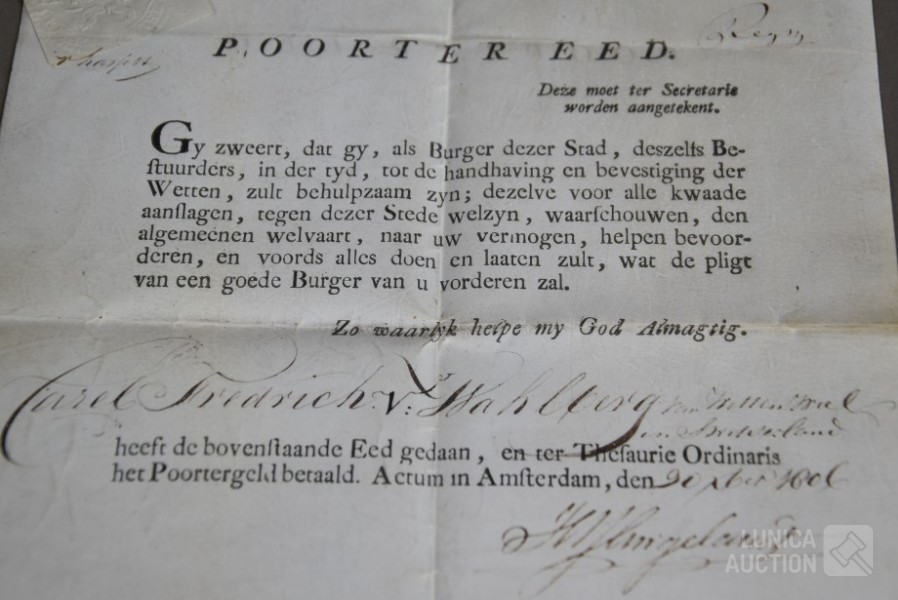 POORTER EED.
Deze moet ter Secretarie
worden aangetekent.
Gy zweert, dat gy, als Burger dezer Stad, deszelfs Be-
ſtuurders, in der tyd, tot de handhaving en bevestiging der
Wetten, zult behulpzaam zyn; dezelve voor alle kwaade
aanſlagen, tegen dezer Stede welzyn, waarſchouwen, den
algemeenen welvaart, naar uw vermogen, helpen bevoor-
deren, en voords alles doen en laaten zult, wat de pligt
van een goede Burger van u vorderen zal.
Zo waarlyk helpe my God Almagtig.
Carel Fredrich v: Wahlberg
heeft de bovenſtaande Eed gedaan, en ter Theſaurie Ordinaris
het Poortergeld betaald. Actum in Amſterdam, den 20 xber 1806
LUNICA
AUCTION